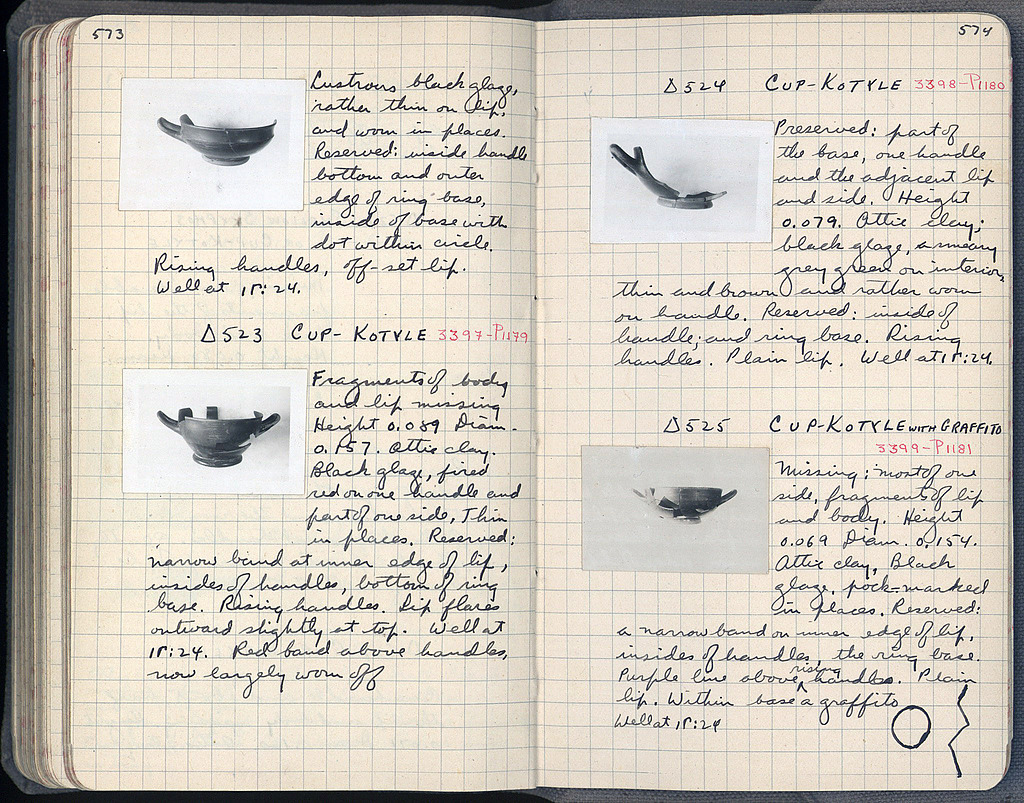 573
Lustrous black glaze,
rather thin on lip,
and worn in places.
Reserved: inside handle
bottom and outer
edge of ring base,
inside of base with
dot within circle.
Rising handles, off-set lip.
Well at ΙΓ:24.
Δ523 CUP-KOTYLE 3397-P1179
Fragments of body
and lip missing
Height 0.089 Diam.
0.157. Attic clay.
Black glaze, fired
red on one handle and
part of one side, Thin
in places. Reserved:
narrow band at inner edge of lip,
insides of handles, bottom of ring
base. Rising handles. Lip flares
outward slightly at top. Well at
ΙΓ:24. Red band above handles,
now largely worn off
574
Δ524 CUP-KOTYLE 3398-P1180
Preserved: part of
the base, one handle
and the adjacent lip
and side. Height
0.079. Attic clay;
black glaze, a smeary
grey green on interior,
thin and brown and rather worn
on handle. Reserved: inside of
handle; and ring base. Rising
handles. Plain lip. Well at ΙΓ:24.
Δ525 CUP-KOTYLE WITH GRAFFITO
3399-P1181
Missing; most of one
side, fragments of lip
and body. Height
0.069 Diam. 0.154.
Attic clay, Black
glaze, pock-marked
in places. Reserved:
a narrow band on inner edge of lip,
insides of handles, the ring base.
Purple line above rising handles. Plain
lip. Within base a graffito
Well at ΙΓ:24